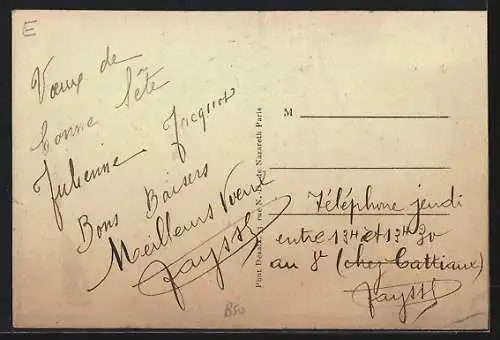 E
Vœux de
bonne fête
Julienne Jacquot
Bons Baisers
Meilleurs Vœux
Fayssh
Phot Desaix, 13 rue N. D. de Nazareth Paris
M
Téléphone jeudi
entre 13H et 13H 30
au 8e (chez Cattiaux)
B50